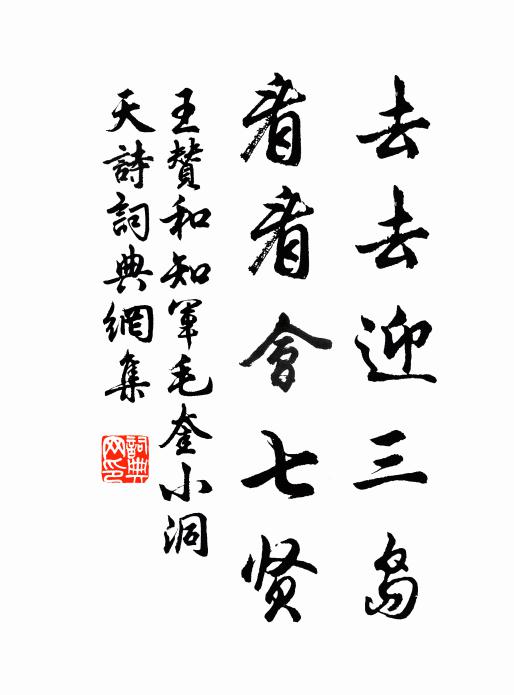 去去迎三島
看看會七贤
王贊和知軍毛奎小洞
天詩詞典網集
詞典
网印